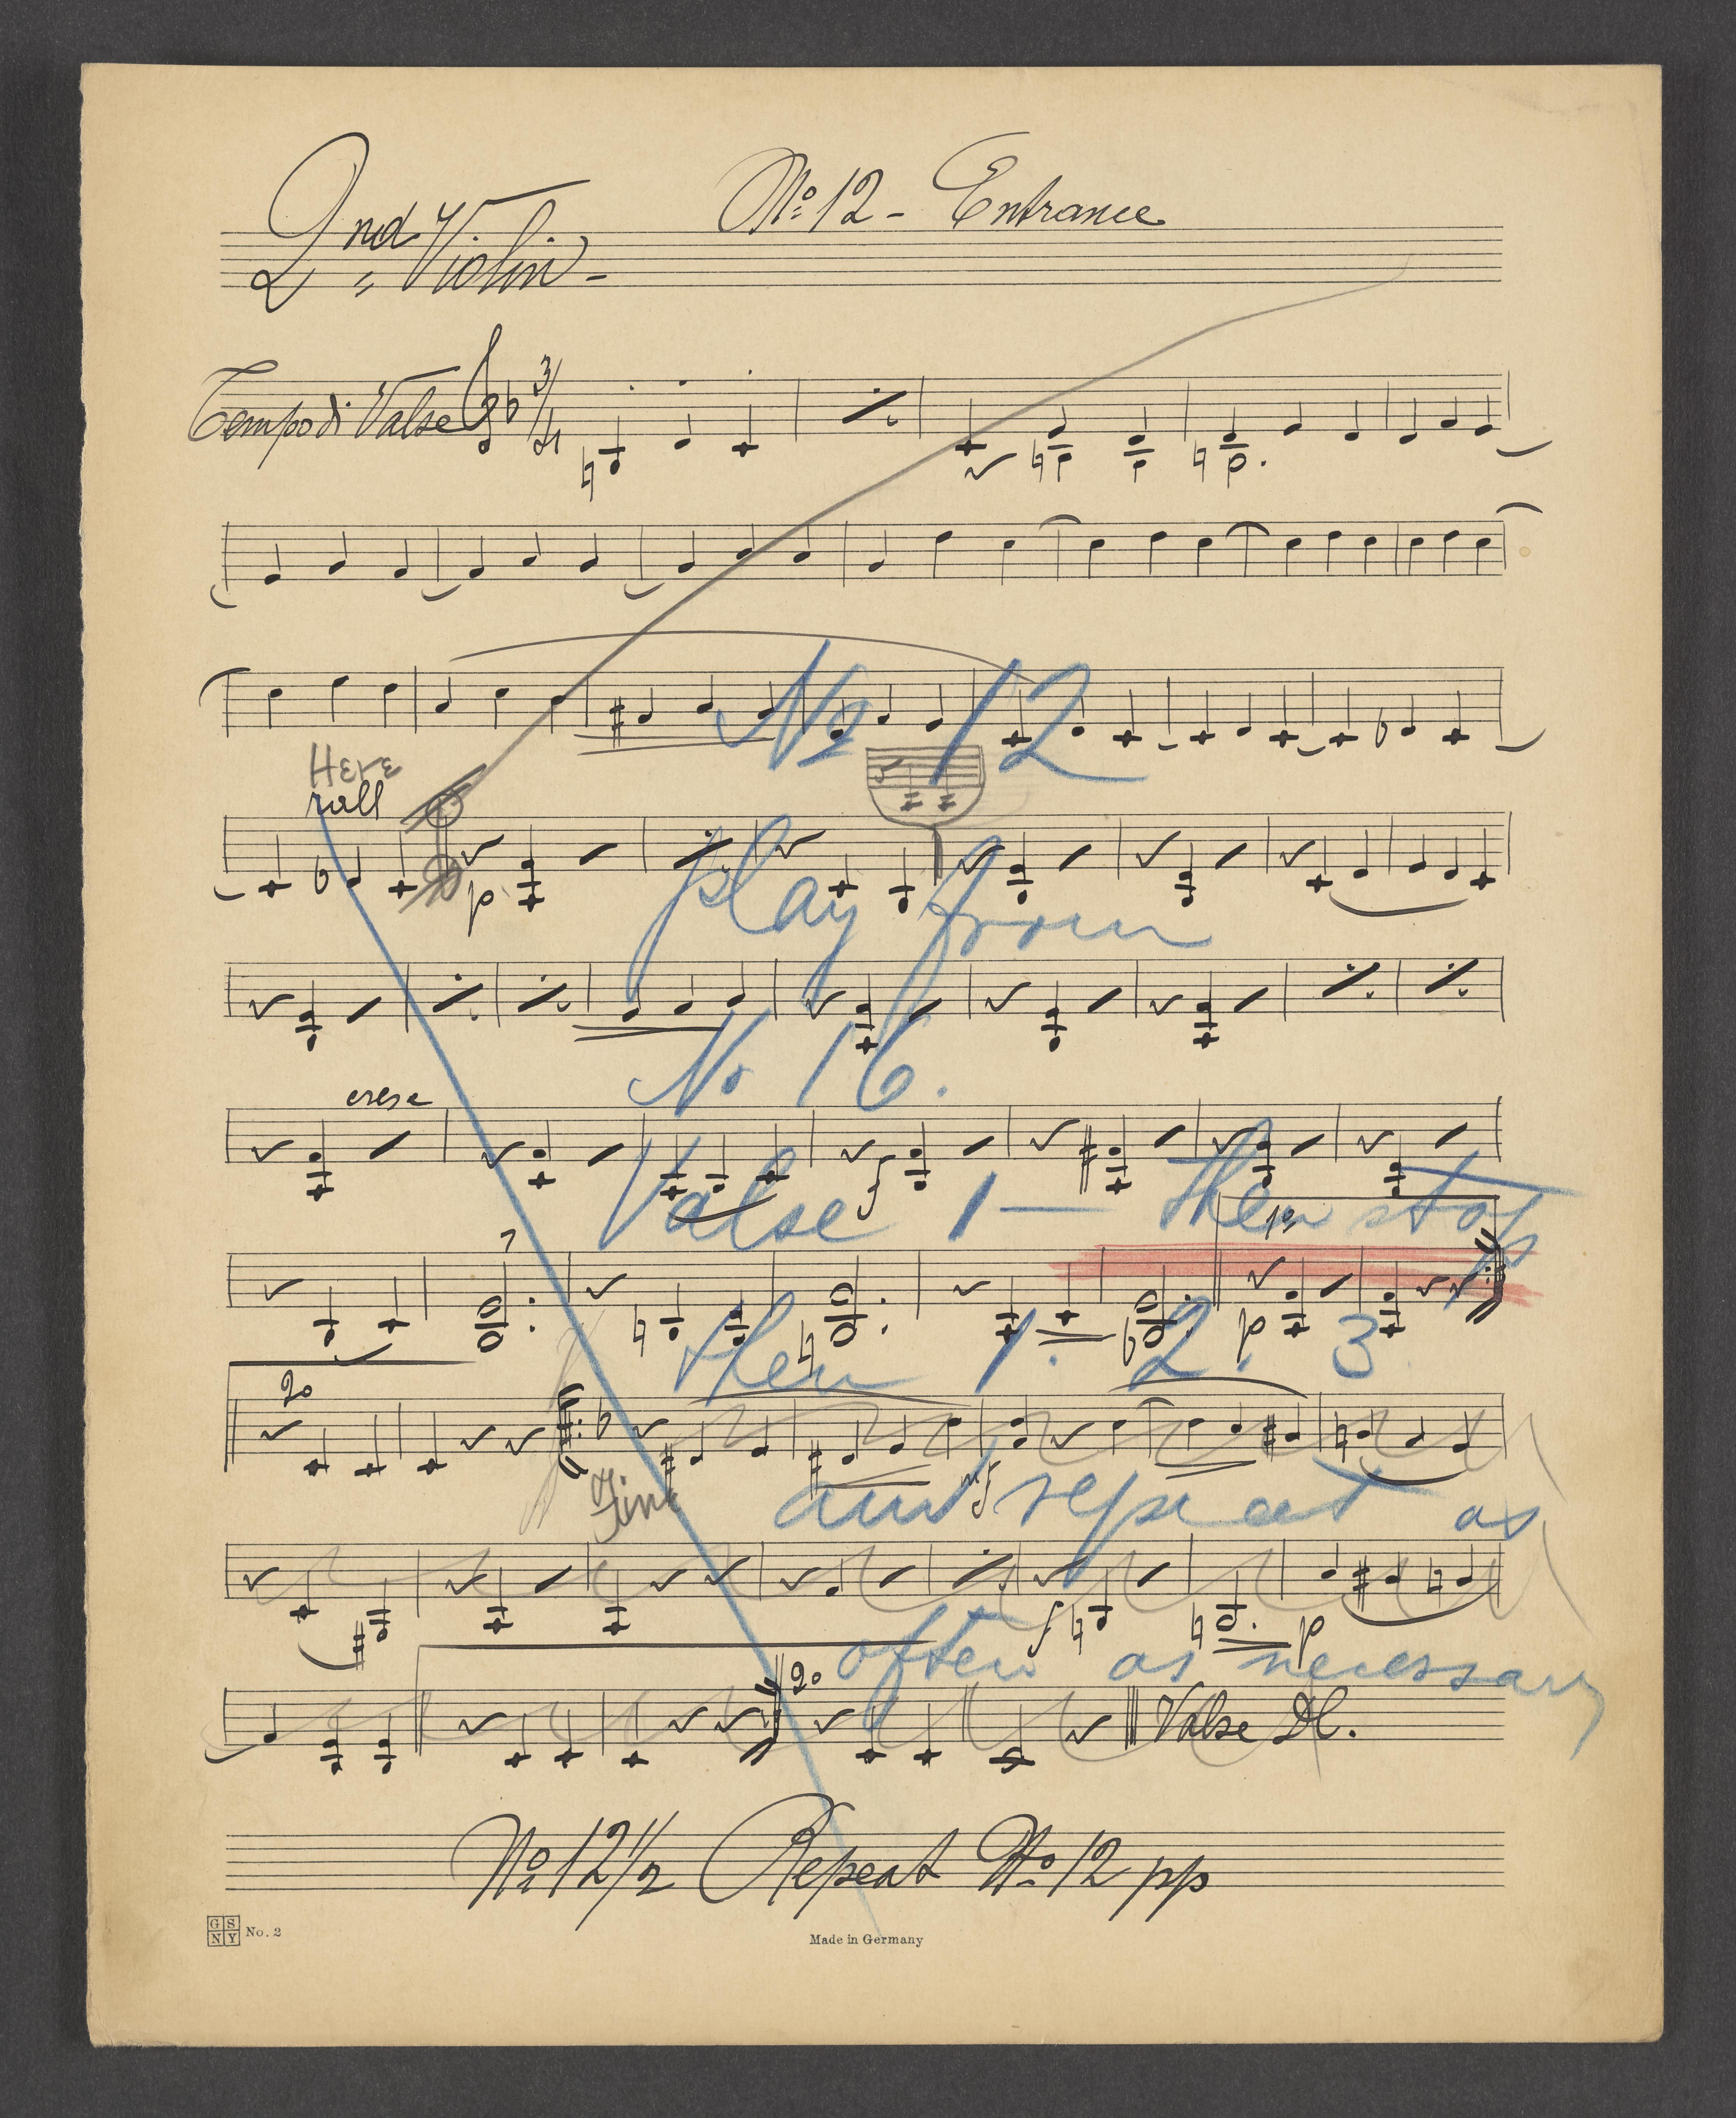 2nd Violin -
No 12 - Entrance
Tempo di Valse
3/4
No 12
Here
rall
p
play from
No 16.
cresc
f
Valse 1 — then stop
1o
p
then 1. 2. 3
2o
Fine
mf
and repeat as
f
p
often as necessary
2o
Valse DC.
No 12 1/2 Repeat No 12 pp
G S N Y No. 2
Made in Germany